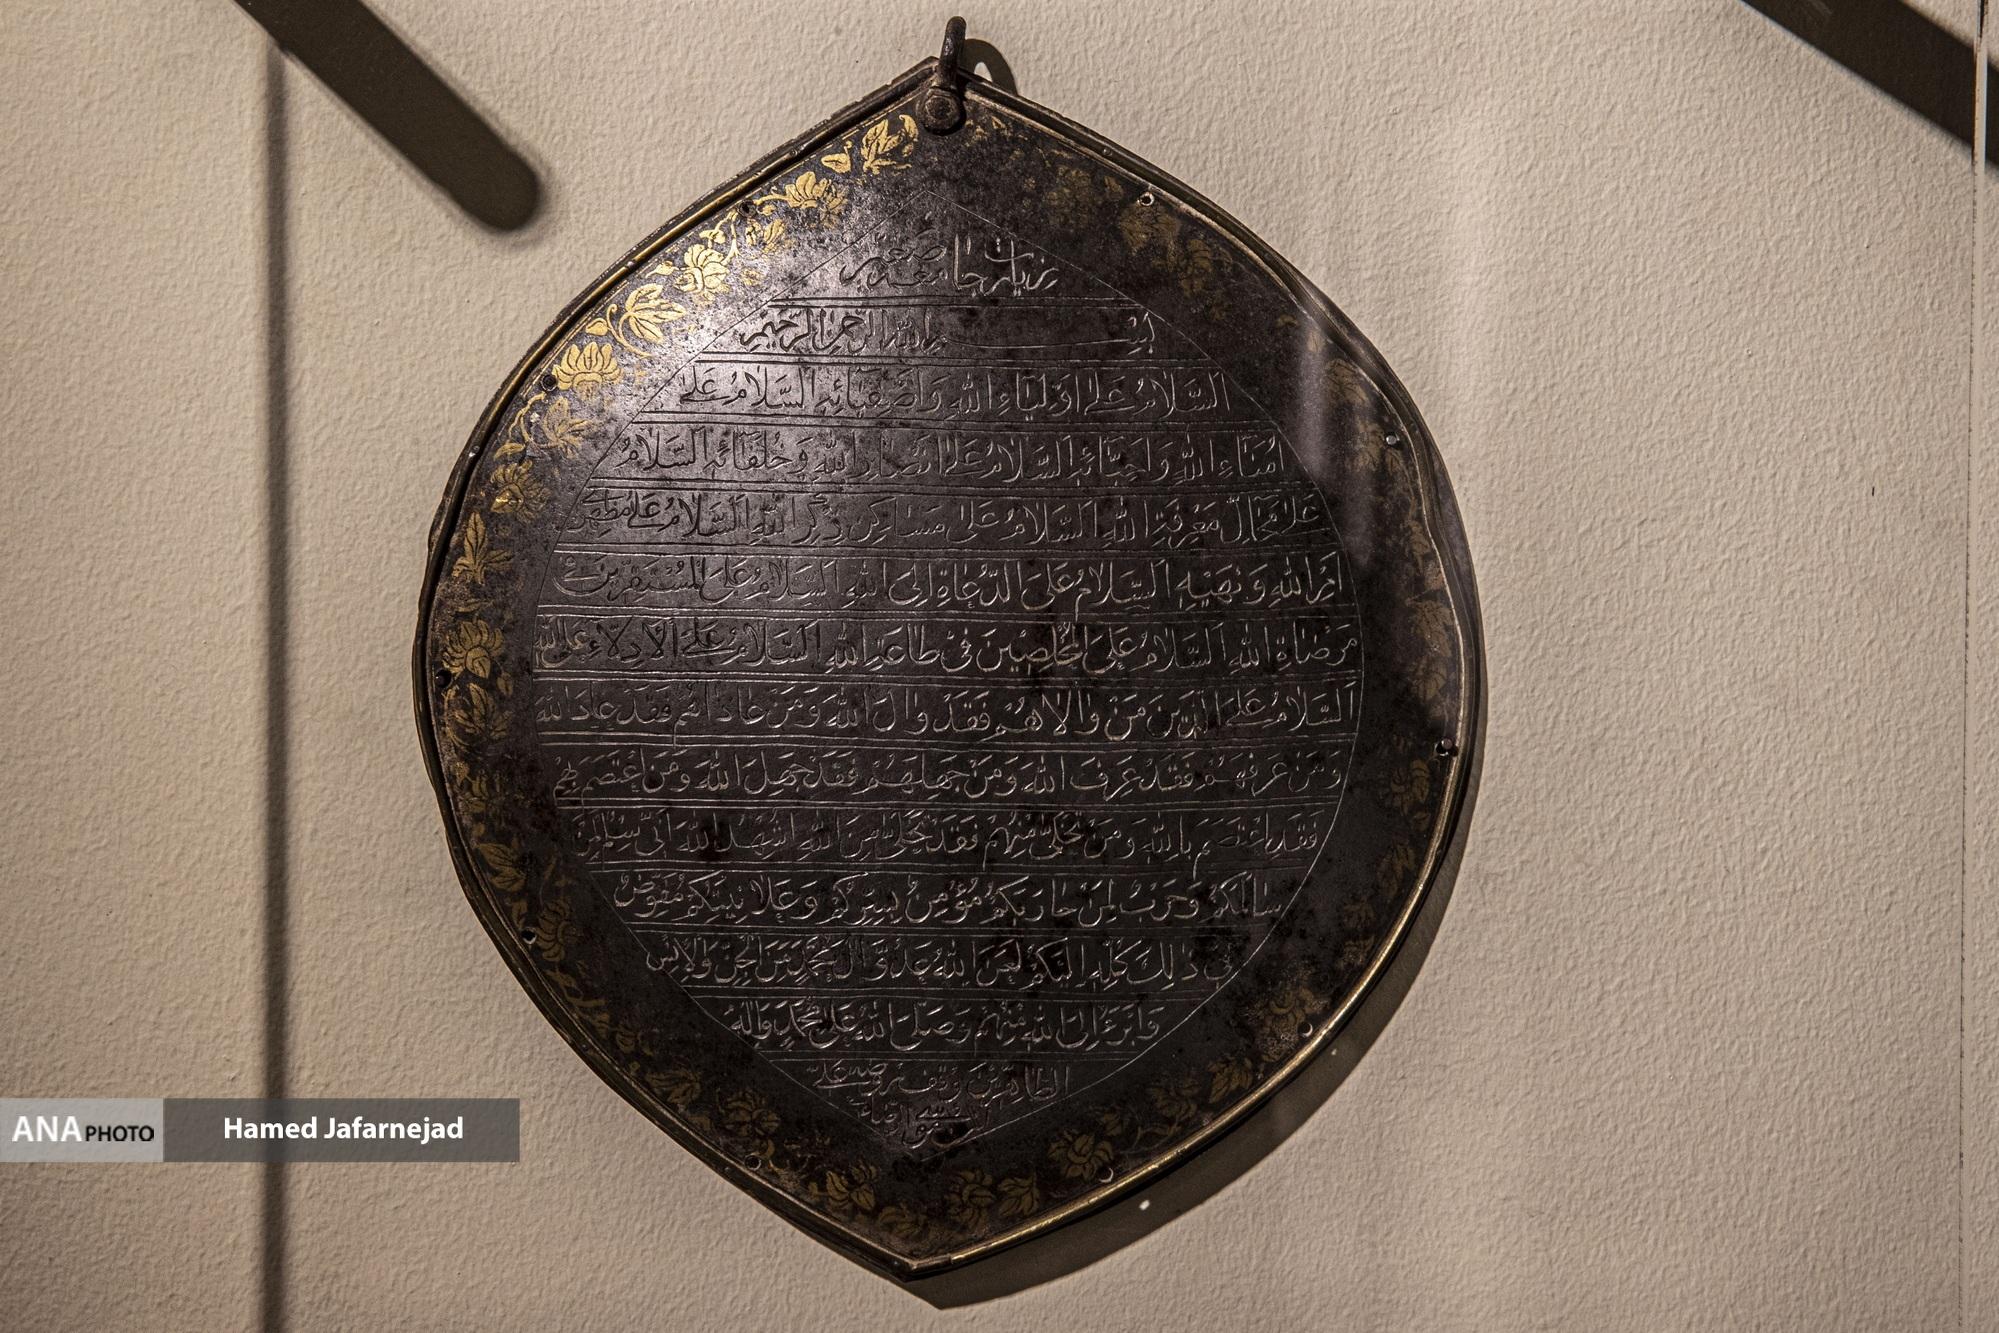 زیارت جامعه صغیر
بسم الله الرحمن الرحیم
اَلسَّلامُ عَلیٰ اَوْلیاءِ اللهِ وَاَصْفیٰائِهِ اَلسَّلامُ عَلیٰ
اُمَنٰاءِ اللهِ وَاَحِبّٰائِهِ اَلسَّلامُ عَلیٰ اَنْصٰارِ اللهِ وَخُلَفٰائِهِ اَلسَّلامُ
عَلیٰ مَحٰالِّ مَعْرِفَةِ اللهِ اَلسَّلامُ عَلیٰ مَسٰاکِنِ ذِکْرِ اللهِ اَلسَّلامُ عَلیٰ مظهری
اَمْرِ اللهِ وَ نَهْیِهِ اَلسَّلامُ عَلَی الدُّعٰاةِ اِلَی اللهِ اَلسَّلامُ عَلَی الْمُسْتَقِرّینَ فی
مَرْضٰاةِ اللهِ اَلسَّلامُ عَلَی الْمُخْلِصینَ فی طٰاعَةِ اللهِ اَلسَّلامُ عَلَی الْاَدِلّٰاءِ عَلَی اللهِ
اَلسَّلامُ عَلَی الَّذینَ مَنْ وٰالاهُمْ فَقَدْ وٰالَ اللهَ وَمَنْ عٰادٰاهُمْ فَقَدْ عٰادَ اللهَ
وَمَنْ عَرَفَهُمْ فَقَدْ عَرَفَ اللهَ وَمَنْ جَهِلَهُمْ فَقَدْ جَهِلَ اللهَ وَمَنِ اعْتَصَمَ بِهِمْ
فَقَدِ اعْتَصَمَ بِاللهِ وَمَنْ تَخَلّیٰ مِنْهُمْ فَقَدْ تَخَلّیٰ مِنَ اللهِ اُشْهِدُ اللهَ اَنّی سِلْمٌ لِمَنْ
سٰالَمَکُمْ وَحَرْبٌ لِمَنْ حٰارَبَکُمْ مُؤْمِنٌ بِسِرِّکُمْ وَعَلانِیَتِکُمْ مُفَوِّضٌ
فی ذٰلِکَ کُلِّهِ اِلَیْکُمْ لَعَنَ اللهُ عَدُوَّ اٰلِ مُحَمَّدٍ مِنَ الْجِنِّ وَالْاِنْسِ
وَاَبْرَءُ اِلَی اللهِ مِنْهُمْ وَصَلَّی اللهُ عَلیٰ مُحَمَّدٍ وَاٰلِهِ
الطّٰاهِرینَ
ANA PHOTO
Hamed Jafarnejad